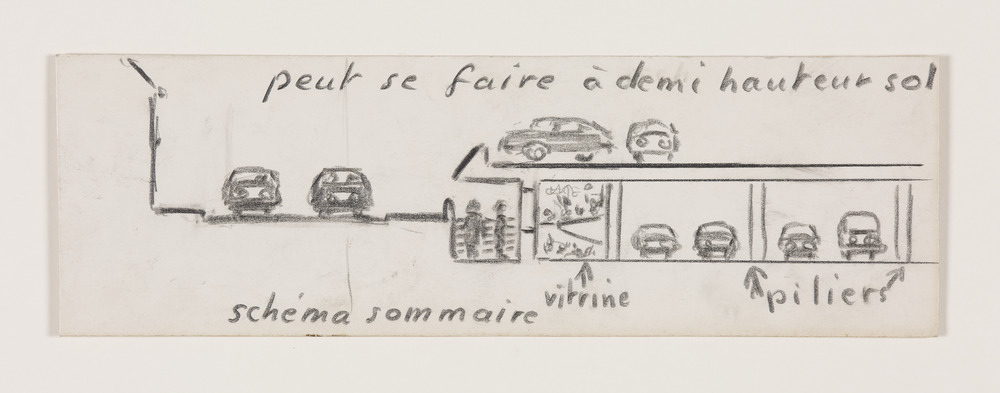 peut se faire à demi hauteur sol
vitrine
piliers
schéma sommaire